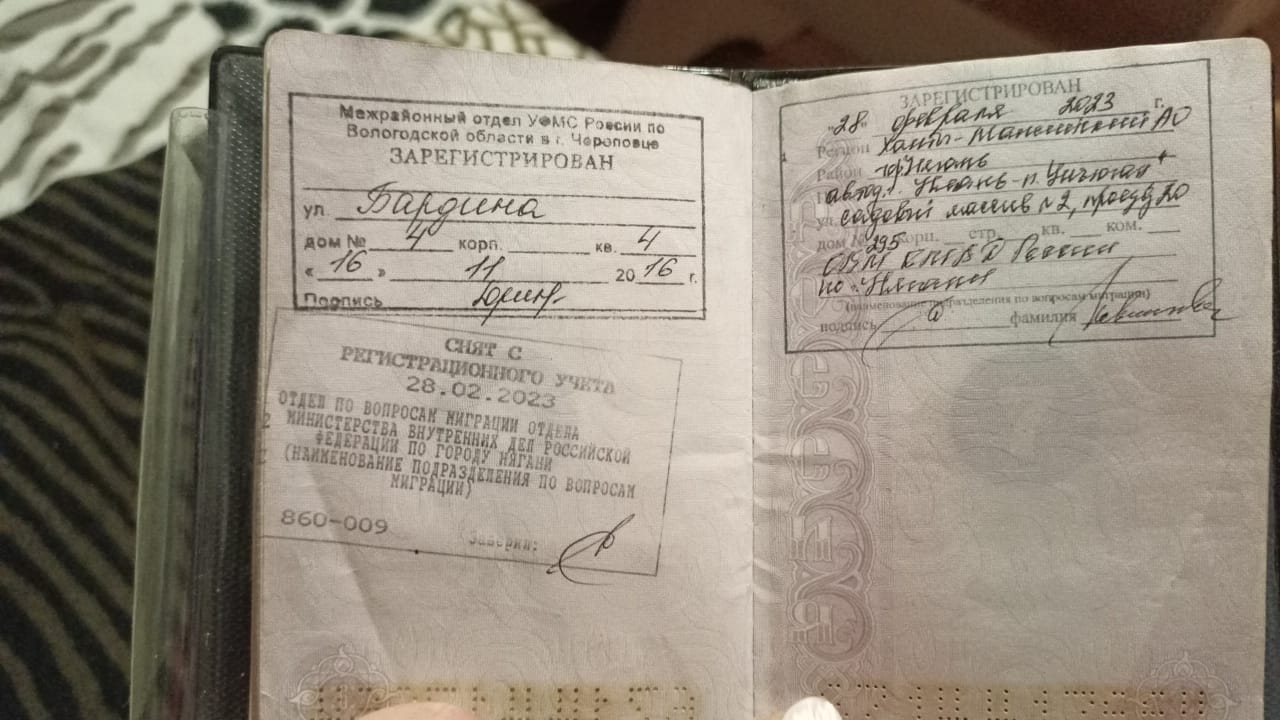 Межрайонный отдел УФМС России по
Вологодской области в г. Череповце
ЗАРЕГИСТРИРОВАН
ул. Бардина
дом № 4 корп. кв. 4
« 16 » 11 20 16 г.
Подпись
СНЯТ С
РЕГИСТРАЦИОННОГО УЧЕТА
28.02.2023
ОТДЕЛ ПО ВОПРОСАМ МИГРАЦИИ ОТДЕЛА
МИНИСТЕРСТВА ВНУТРЕННИХ ДЕЛ РОССИЙСКОЙ
ФЕДЕРАЦИИ ПО ГОРОДУ НЯГАНИ
(НАИМЕНОВАНИЕ ПОДРАЗДЕЛЕНИЯ ПО ВОПРОСАМ
МИГРАЦИИ)
860-009 Заверил:
ЗАРЕГИСТРИРОВАН
"28" февраля 2023 г.
Регион Ханты-Мансийский АО
Район гор. Нягань
автод. г. Нягань-п.
ул. садовый массив № 2, проезд 20
дом № 295 корп. стр. кв. ком.
ОВМ ОМВД России
по г. Нягани
(наименование подразделения по вопросам миграции)
подпись фамилия